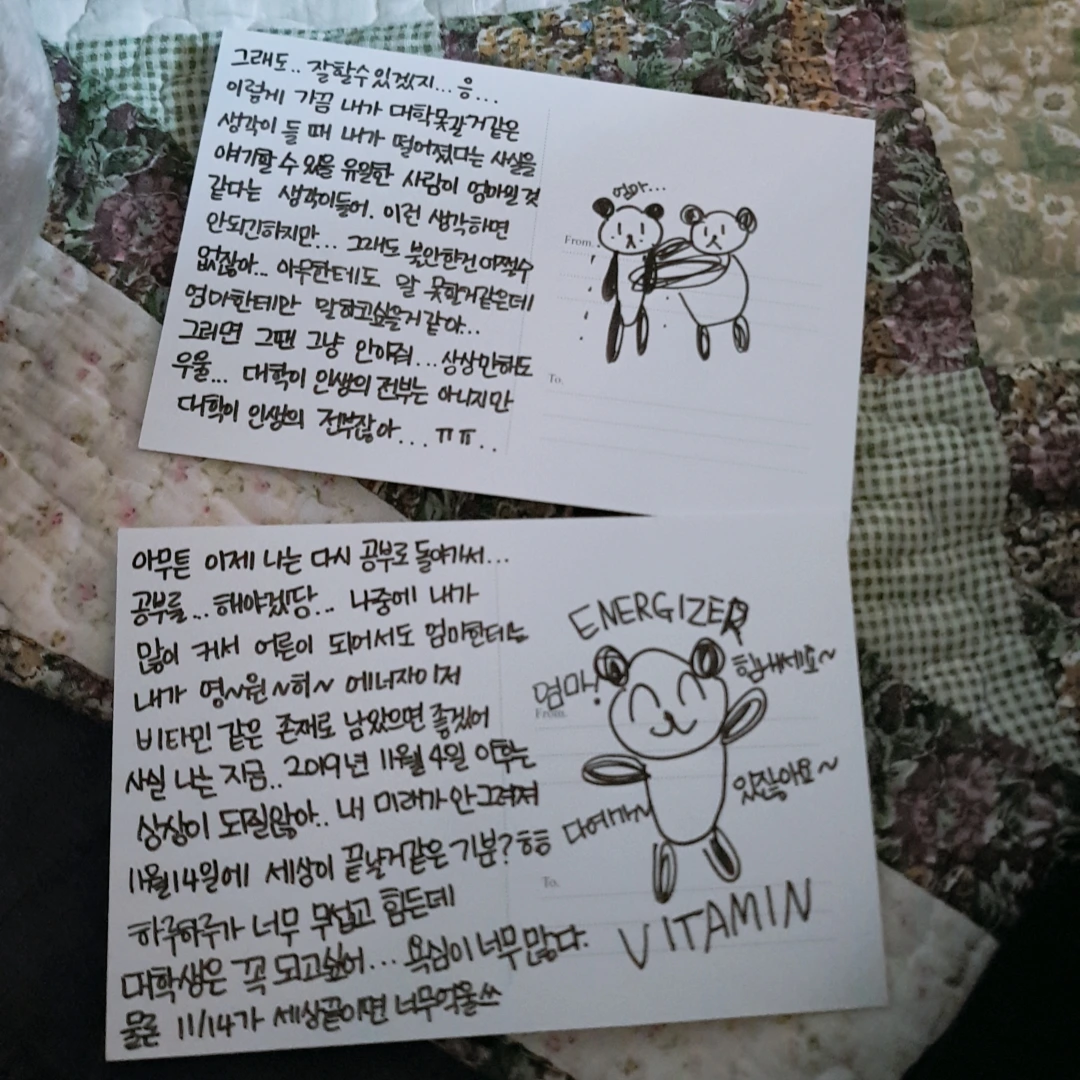 그래도.. 잘할수있겠지...응...
이렇게 가끔 내가 대학못갈거같은
생각이 들 때 내가 떨어졌다는 사실을
얘기할 수 있을 유일한 사람이 엄마일 것
같다는 생각이들어. 이런 생각하면
안되긴하지만... 그래도 불안한건 어쩔수
없잖아.. 아무한테도 말 못할거같은데
엄마한테만 말하고싶을거같아..
그러면 그땐 그냥 안아줘...상상만해도
우울... 대학이 인생의 전부는 아니지만
대학이 인생의 전부잖아...ㅠㅠ..
엄마...
From.
To.
아무튼 이제 나는 다시 공부로 돌아가서...
공부를...해야겠당... 나중에 내가
많이 커서 어른이 되어서도 엄마한테는
내가 영~원~히~ 에너자이저
비타민 같은 존재로 남았으면 좋겠어
사실 나는 지금.. 2019년 11월 4일 이후는
상상이 되질않아.. 내 미래가 안그려져
11월14일에 세상이 끝날거같은 기분? ㅎㅎ
하루하루가 너무 무섭고 힘든데
대학생은 꼭 되고싶어... 욕심이 너무 많다.
물론 11/14가 세상끝이면 너무억울쓰
ENERGIZER
엄마!
힘내세요~
From.
있잖아요~
To.
VITAMIN